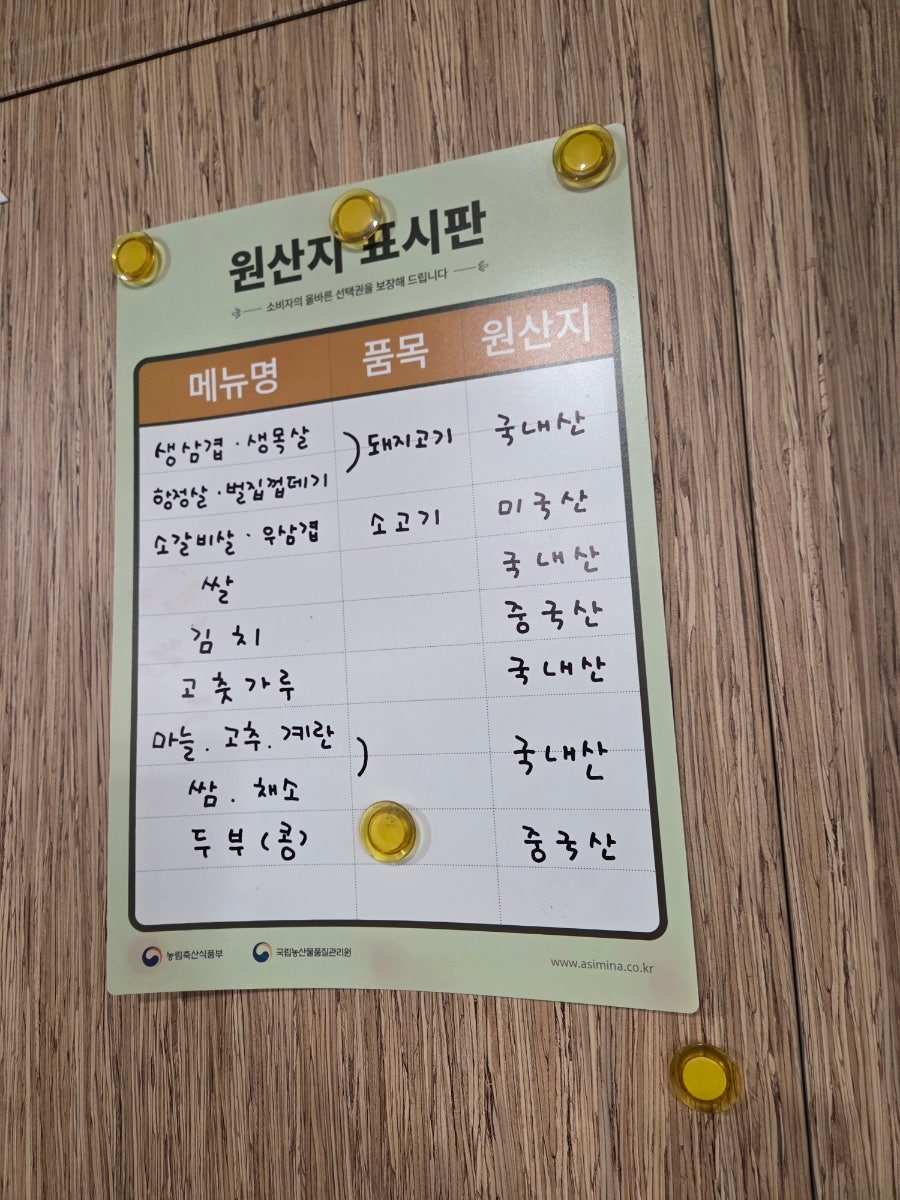 원산지 표시판
소비자의 올바른 선택권을 보장해 드립니다
메뉴명 품목 원산지
생삼겹 · 생목살 ) 돼지고기 국내산
항정살 · 벌집껍데기
소갈비살 · 우삼겹 소고기 미국산
쌀 국내산
김치 중국산
고춧가루 국내산
마늘. 고추. 계란 ) 국내산
쌈. 채소
두부(콩) 중국산
농림축산식품부 국립농산물품질관리원 www.asimina.co.kr